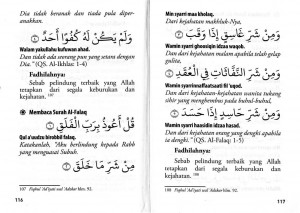 Dia tidak beranak dan tiada pula diper-
anakkan.
وَلَمْ يَكُنْ لَهُ كُفُوًا أَحَدٌ
Walam yakullahu kufuwan ahad.
Dan tidak ada seorang pun yang setara dengan
Dia" (QS. Al-Ikhlas: 1-4)
Fadhilahnya:
Sebab pelindung terbaik yang Allah
tetapkan dari segala keburukan dan
kejahatan. 107
Membaca Surah Al-Falaq
قُلْ أَعُوذُ بِرَبِّ الْفَلَقِ
Qul a'uudzu birobbil falaq.
Katakanlah, "Aku berlindung kepada Rabb
yang menguasai Subuh.
مِنْ شَرِّ مَا خَلَقَ
107 Fiqhul 'Ad'iyati wal 'Adzkar hlm. 92.
116
Min syarri maa kholaq.
Dari kejahatan makhluk-Nya,
وَمِنْ شَرِّ غَاسِقٍ إِذَا وَقَبَ
Wamin syarri ghoosiqin idzaa waqob.
Dan dari kejahatan malam apabila telah gelap
gulita,
وَمِنْ شَرِّ النَّفَّاثَاتِ فِي الْعُقَدِ
Wamin syarrinnaffaatsaati fil 'uqod.
Dan dari kejahatan-kejahatan wanita tukang
sihir yang menghembus pada buhul-buhul,
وَمِنْ شَرِّ حَاسِدٍ إِذَا حَسَدَ
Wamin syarri haasidin idzaa hasad.
Dan dari kejahatan orang yang dengki apabila
ia dengki." (QS. Al-Falaq: 1-5)
Fadhilahnya:
Sebab pelindung terbaik yang Allah
tetapkan dari segala keburukan dan
kejahatan. 108
108 Fiqhul 'Ad'iyati wal 'Adzkar hlm. 92.
117